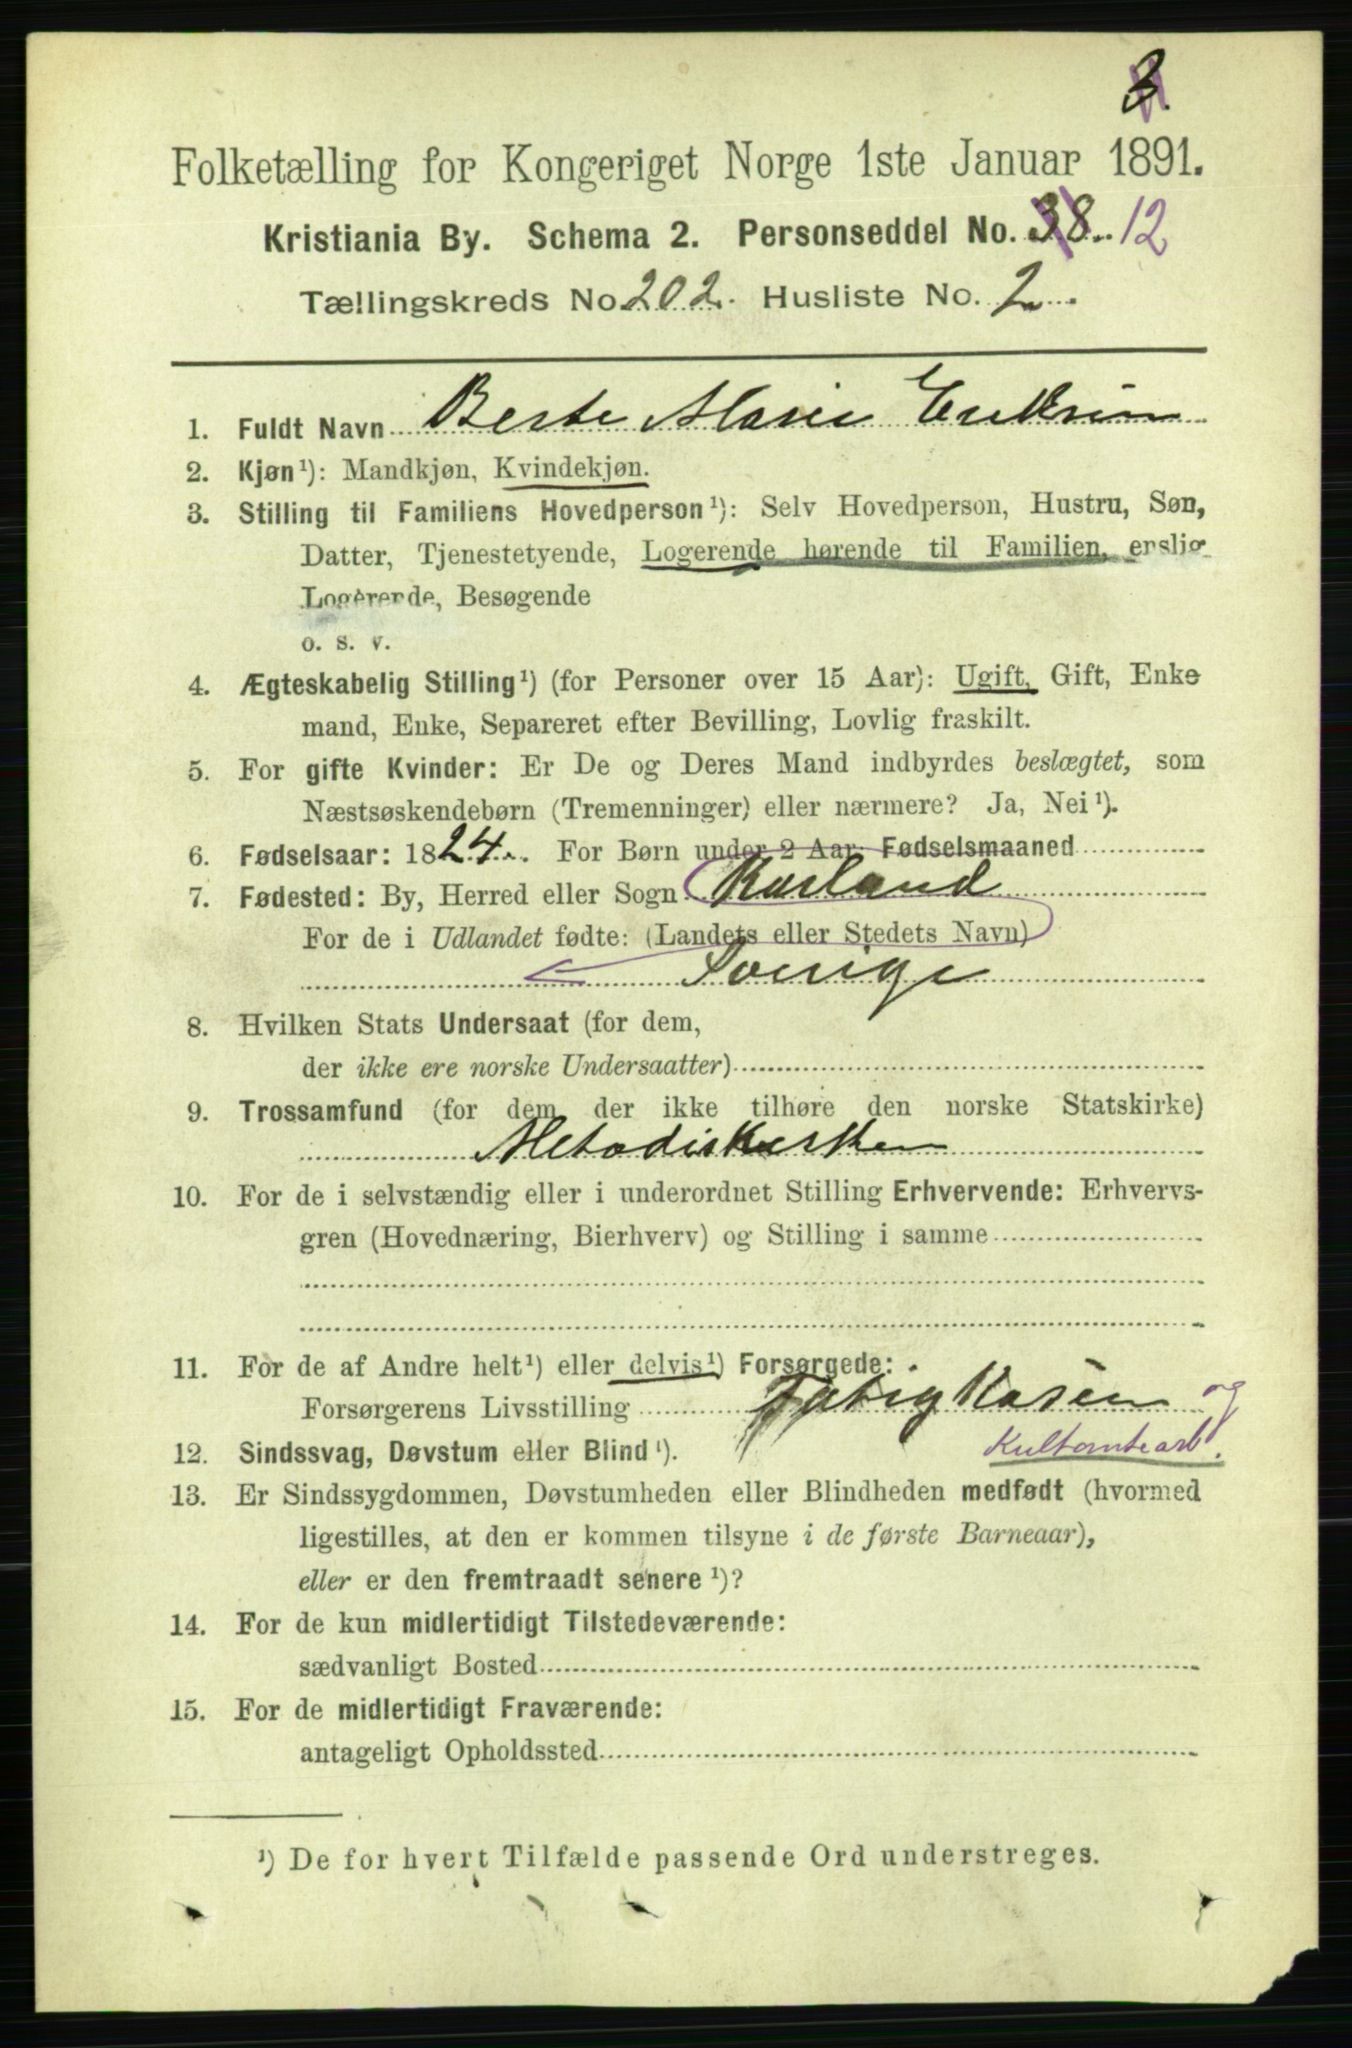 3
Folketælling for Kongeriget Norge 1ste Januar 1891.
Kristiania By. Schema 2. Personseddel No. 38 12
Tællingskreds No. 202. Husliste No. 2.
1. Fuldt Navn Berte Marie Eriksen
2. Kjøn¹): Mandkjøn, Kvindekjøn.
3. Stilling til Familiens Hovedperson¹): Selv Hovedperson, Hustru, Søn,
Datter, Tjenestetyende, Logerende hørende til Familien, enslig
Logerende, Besøgende
o. s. v.
4. Ægteskabelig Stilling¹) (for Personer over 15 Aar): Ugift, Gift, Enke
mand, Enke, Separeret efter Bevilling, Lovlig fraskilt.
5. For gifte Kvinder: Er De og Deres Mand indbyrdes beslægtet, som
Næstsøskendebørn (Tremenninger) eller nærmere? Ja, Nei¹).
6. Fødselsaar: 1824. For Børn under 2 Aar: Fødselsmaaned
7. Fødested: By, Herred eller Sogn Karland
For de i Udlandet fødte: (Landets eller Stedets Navn)
Sverige
8. Hvilken Stats Undersaat (for dem,
der ikke ere norske Undersaatter)
9. Trossamfund (for dem der ikke tilhøre den norske Statskirke)
Metodiskirken
10. For de i selvstændig eller i underordnet Stilling Erhvervende: Erhvervs-
gren (Hovednæring, Bierhverv) og Stilling i samme
11. For de af Andre helt¹) eller delvis¹) Forsørgede:
Forsørgerens Livsstilling Fatigkasen og
12. Sindssvag, Døvstum eller Blind¹).
13. Er Sindssygdommen, Døvstumheden eller Blindheden medfødt (hvormed
ligestilles, at den er kommen tilsyne i de første Barneaar),
eller er den fremtraadt senere¹)?
14. For de kun midlertidigt Tilstedeværende:
sædvanligt Bosted
15. For de midlertidigt Fraværende:
antageligt Opholdssted
¹) De for hvert Tilfælde passende Ord understreges.